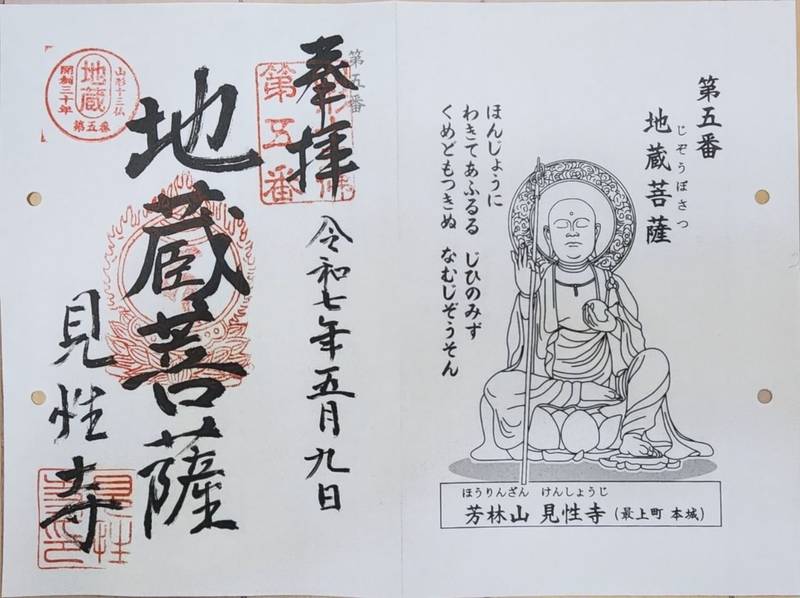 第五番
じぞうぼさつ
地蔵菩薩
ほんじょうに
わきてあふるる じひのみず
くめどもつきぬ なむじぞうそん
ほうりんざん けんしょうじ
芳林山 見性寺 (最上町 本城)
第五番
奉拝
第五番
令和七年五月九日
地蔵菩薩
見性寺
山形十三仏
地蔵
開創三十年
第五番
見性